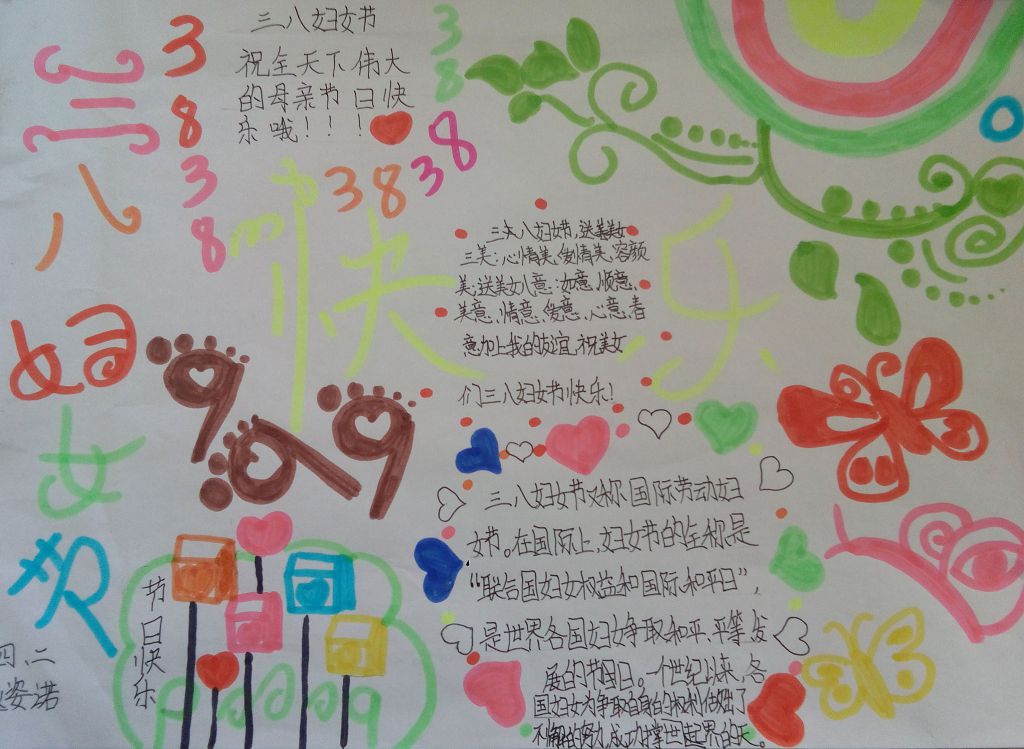 三八妇女节
三.八妇女节
祝全天下伟大
的母亲节日快
乐哦！！！
38
38
38
38
38
快乐
三八妇女节,送美女
三美:心情美、爱情美、容颜
美;送美女八意:如意、顺意、
美意、情意、爱意、心意、春
意,加上我的友谊,祝美女
们三八妇女节快乐!
三.八妇女节又称国际劳动妇
女节。在国际上,妇女节的全称是
“联合国妇女权益和国际和平日”,
是世界各国妇女争取和平、平等、发
展的节日。一个世纪以来,各
国妇女为争取自身的权利做出了
不懈的努力,成功撑世界的天。
节日快乐
四、二
姿诺